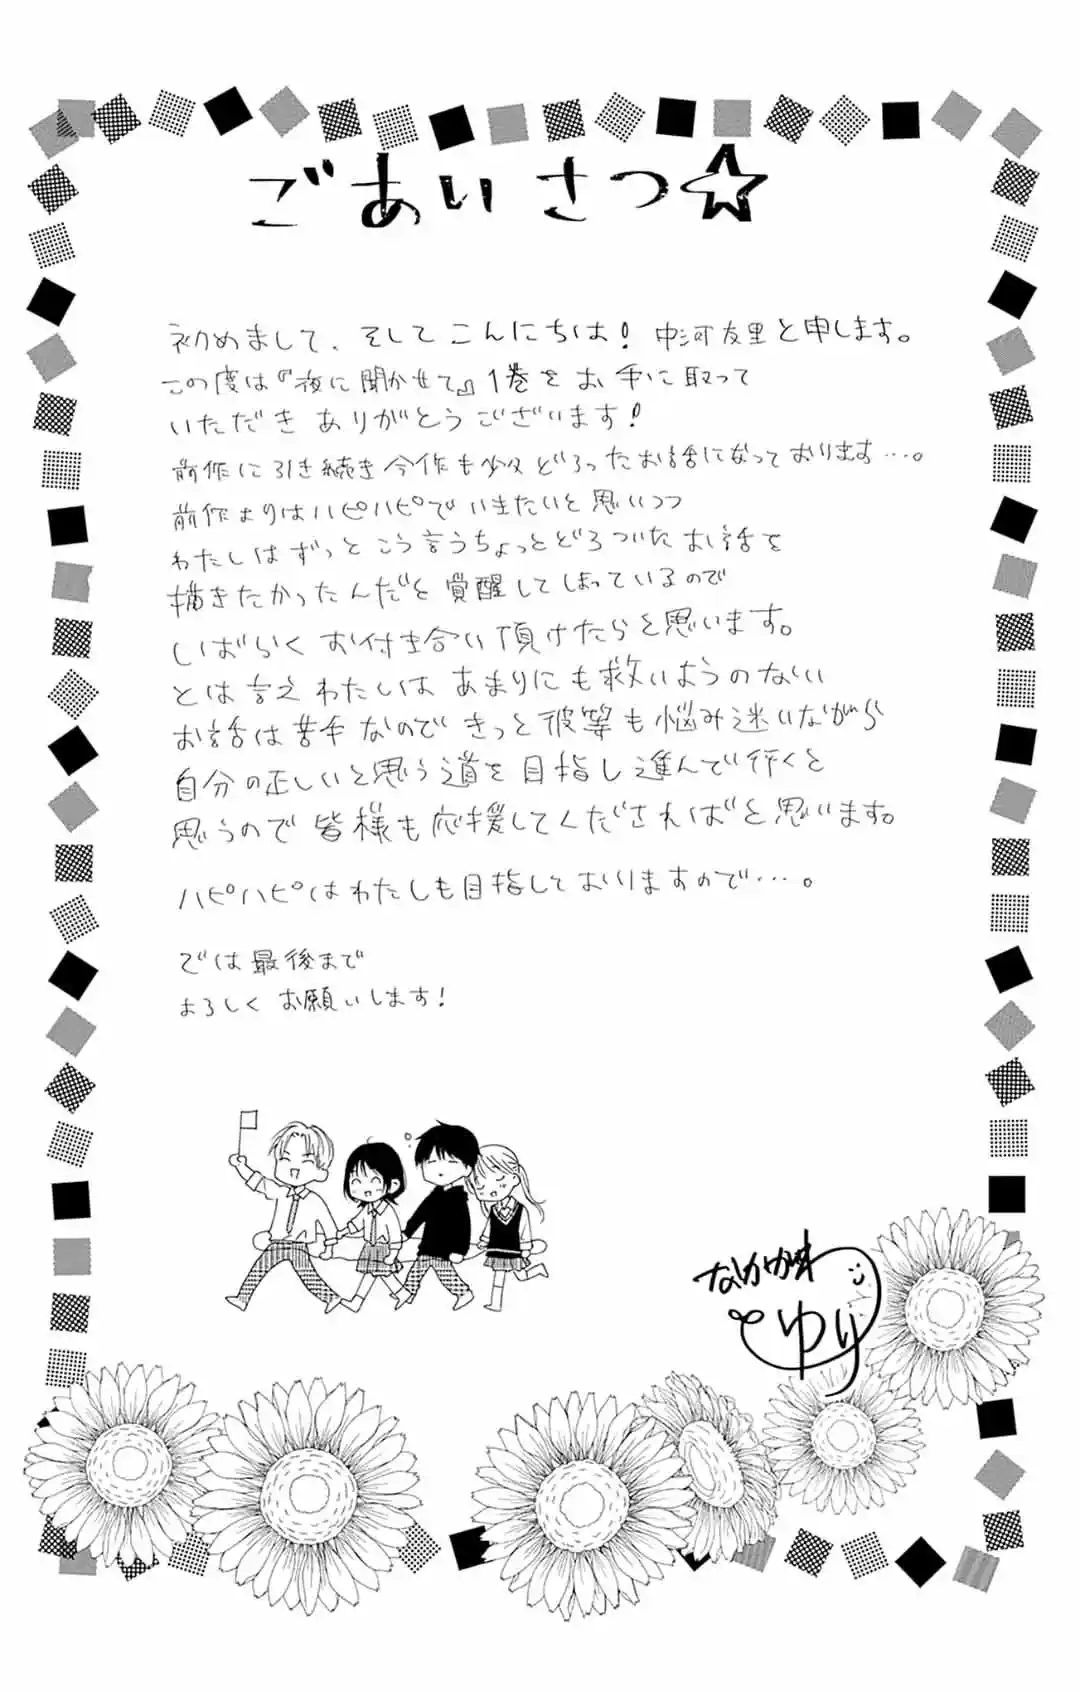 ごあいさつ☆
初めまして、そしてこんにちは！中河友里と申します。
この度は『夜に聞かせて』1巻をお手に取って
いただきありがとうございます！
前作に引き続き今作も少々どろったお話になっております…。
前作よりはハピハピでいきたいと思いつつ
わたしはずっとこう言うちょっとどろついたお話を
描きたかったんだと覚醒してしまっているので
しばらくお付き合い頂けたらと思います。
とは言えわたしはあまりにも救いようのない
お話は苦手なのできっと彼等も悩み迷いながら
自分の正しいと思う道を目指し進んで行くと
思うので皆様も応援してくださればと思います。
ハピハピはわたしも目指しておりますので…。
では最後まで
よろしくお願いします！
なかがわ
ゆり